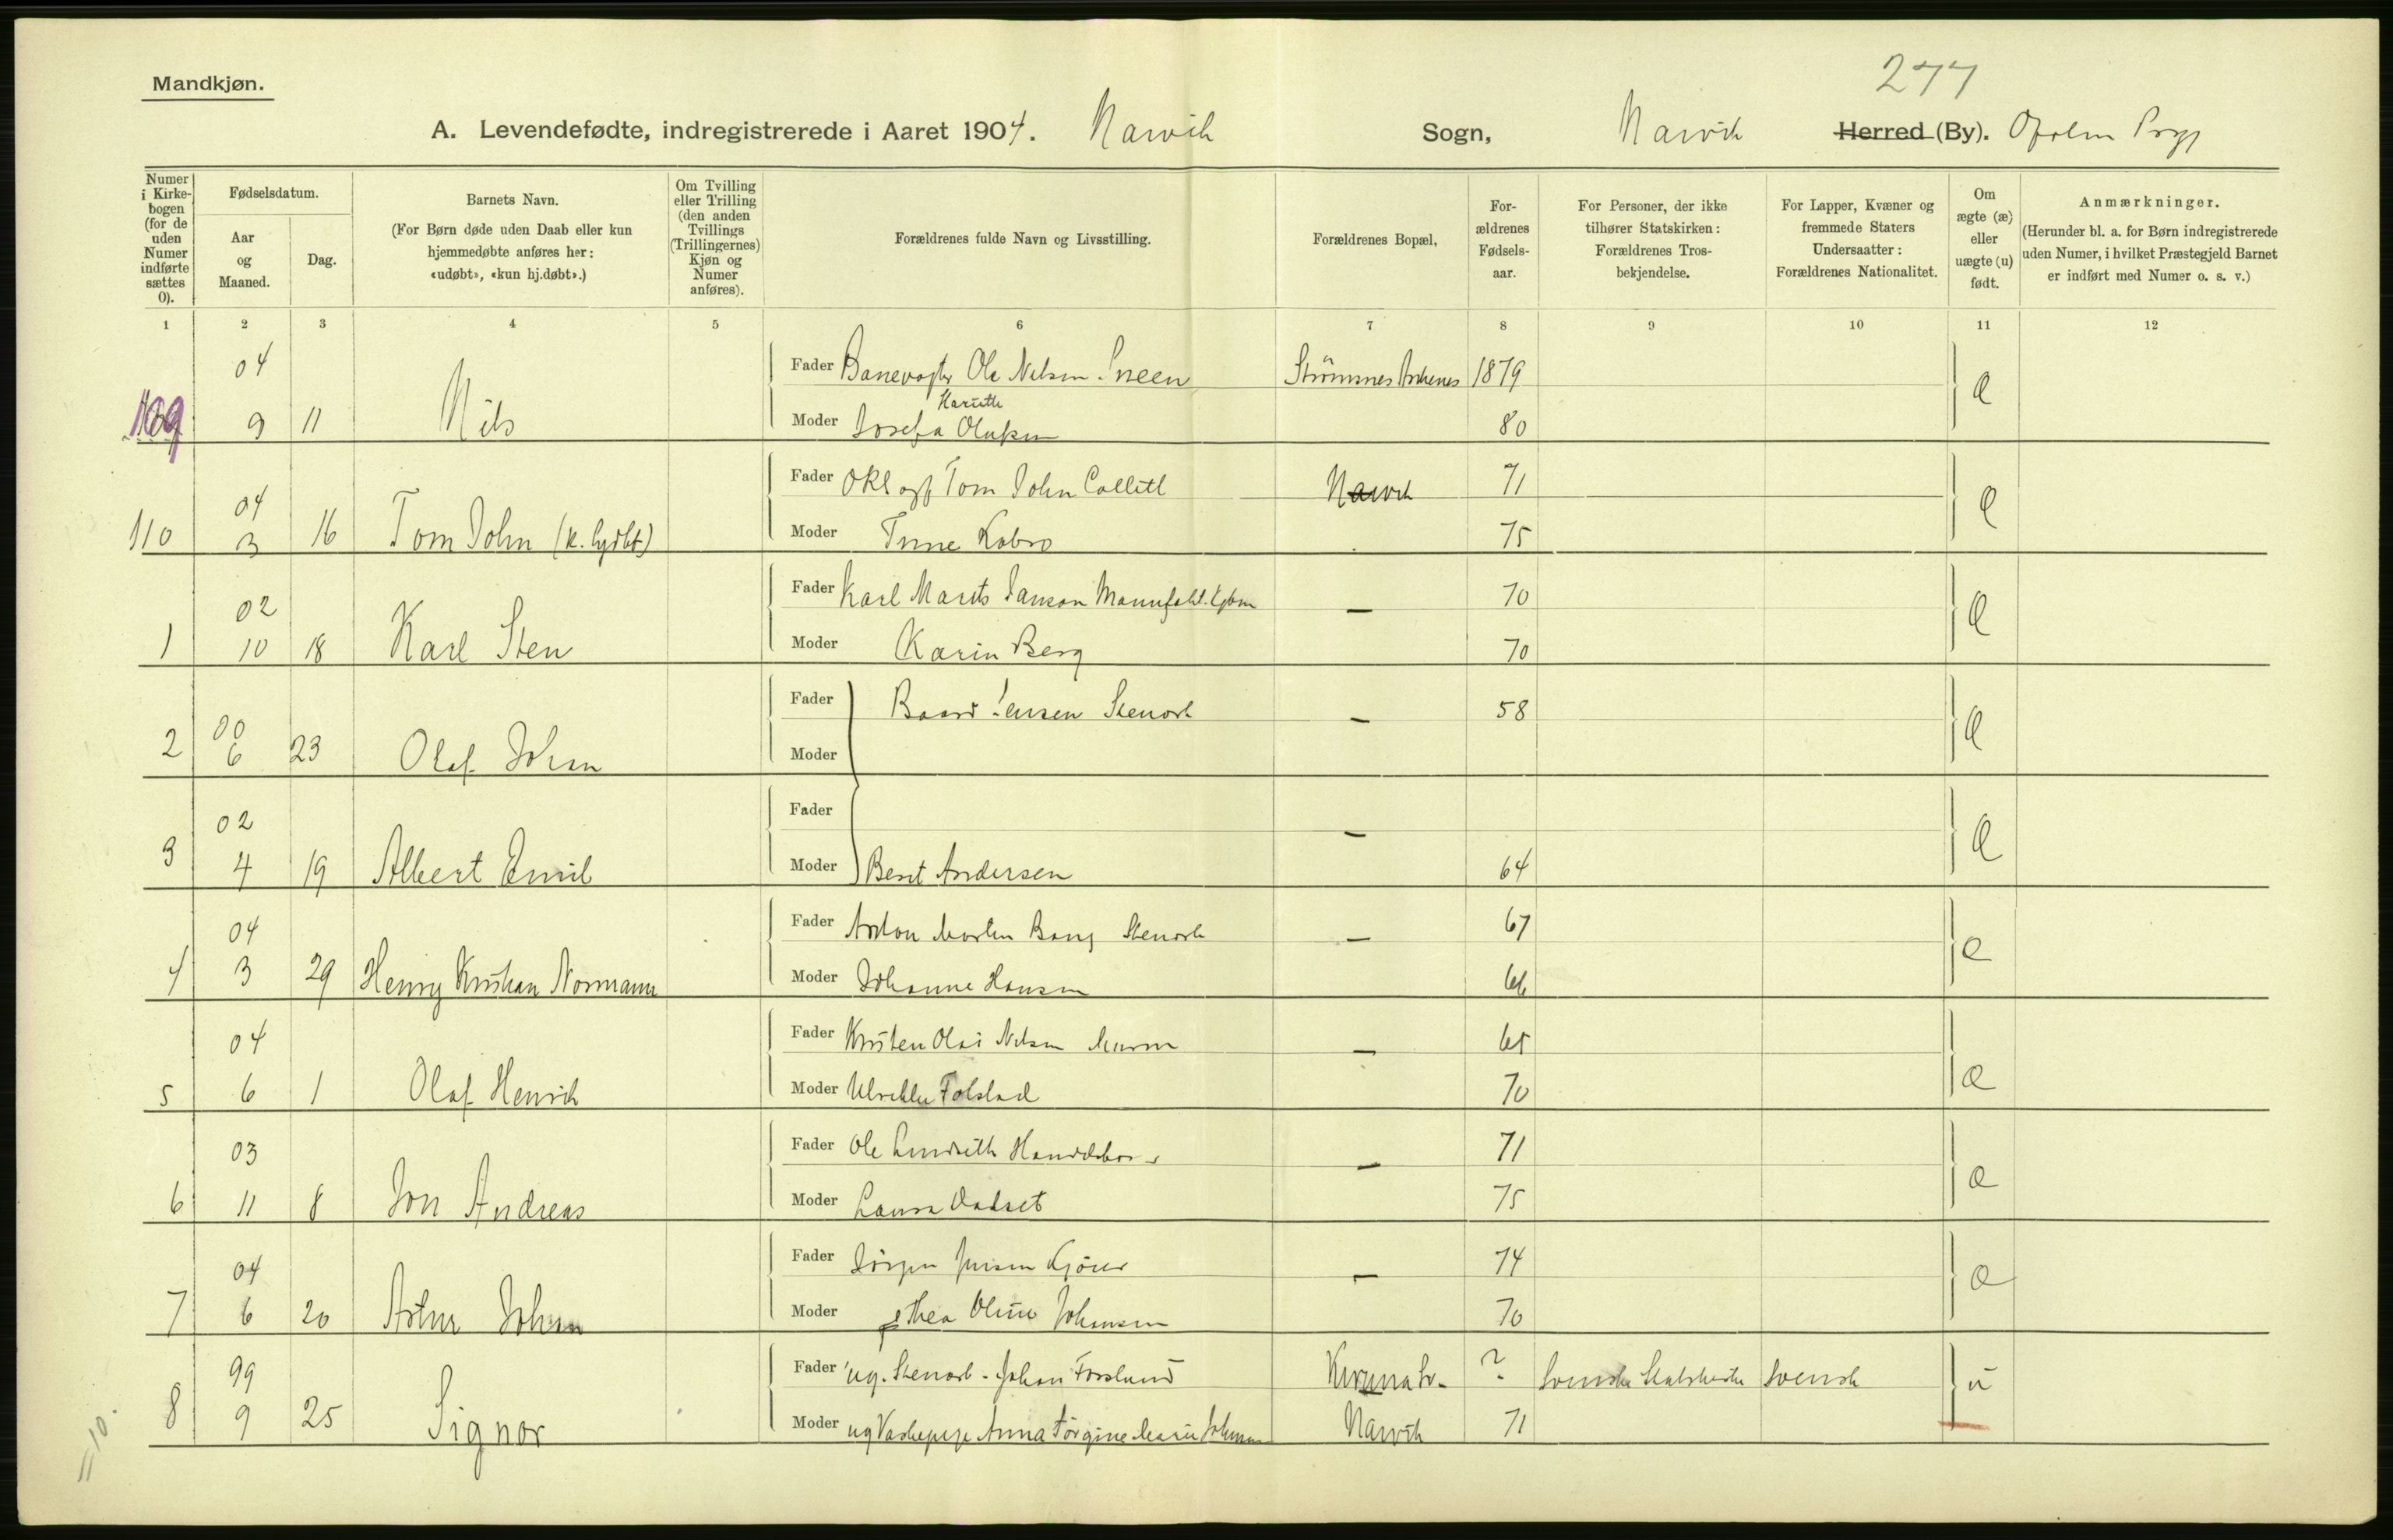 277
Mandkjøn.
A. Levendefødte, indregistrerede i Aaret 1904. Narvik Sogn, Narvik Herred (By). Ofoten
Numer i Kirkebogen (for de uden Numer indførte sættes 0).
Fødselsdatum.
Aar og Maaned.
Dag.
Barnets Navn.
(For Børn døde uden Daab eller kun hjemmedøbte anføres her: «udøbt», «kun hj.døbt».)
Om Tvilling eller Trilling (den anden Tvillings (Trillingernes) Kjøn og Numer anføres).
Forældrenes fulde Navn og Livsstilling.
Forældrenes Bopæl,
Forældrenes Fødselsaar.
For Personer, der ikke tilhører Statskirken: Forældrenes Trosbekjendelse.
For Lapper, Kvæner og fremmede Staters Undersaatter: Forældrenes Nationalitet.
Om ægte (æ) eller uægte (u) født.
Anmærkninger.
(Herunder bl. a. for Børn indregistrerede uden Numer, i hvilket Præstegjeld Barnet er indført med Numer o. s. v.)
1 2 3 4 5 6 7 8 9 10 11 12
04 Fader Banevogter Ole Nelsen Sneen Strömsnes Ankenes 1879 æ
Hariette
109 9 11 Nils Moder Josefa Olufsen 80
04 Fader Tom John Collett Narvik 71 æ
110 3 16 Tom John Moder Kobro 75
02 Fader Karl Marits Janson — 70 æ
1 10 18 Karl Sten Moder Karin Berg 70
00 Fader Baard Jensen Stenarb — 58 æ
2 6 23 Olaf Johan Moder
02 Fader — æ
3 4 19 Albert Emil Moder Berit Andersen 64
04 Fader Anton Martin Bang Stenarb — 67 æ
4 3 29 Henry Kristian Normann Moder Johanne Hansen 66
04 Fader Kristen Olai Nilsen Murer — 65 æ
5 6 1 Olaf Henrik Moder Ulrikke Folstad 70
03 Fader Ole Lindseth — 71 æ
6 11 8 Jon Andreas Moder Laura 75
04 Fader Jörgen Jensen Kjörer — 74 æ
7 6 20 Artur Johan Moder Thea Oline Johansen 70
99 Fader ug. Stenarb - Johan Forslund Kiruna Sv. ? Svenske Statskirke Svensk u
8 9 25 Signar Moder ug Vaskepige Anna Jörgine Marie Johansen Narvik 71
=10.